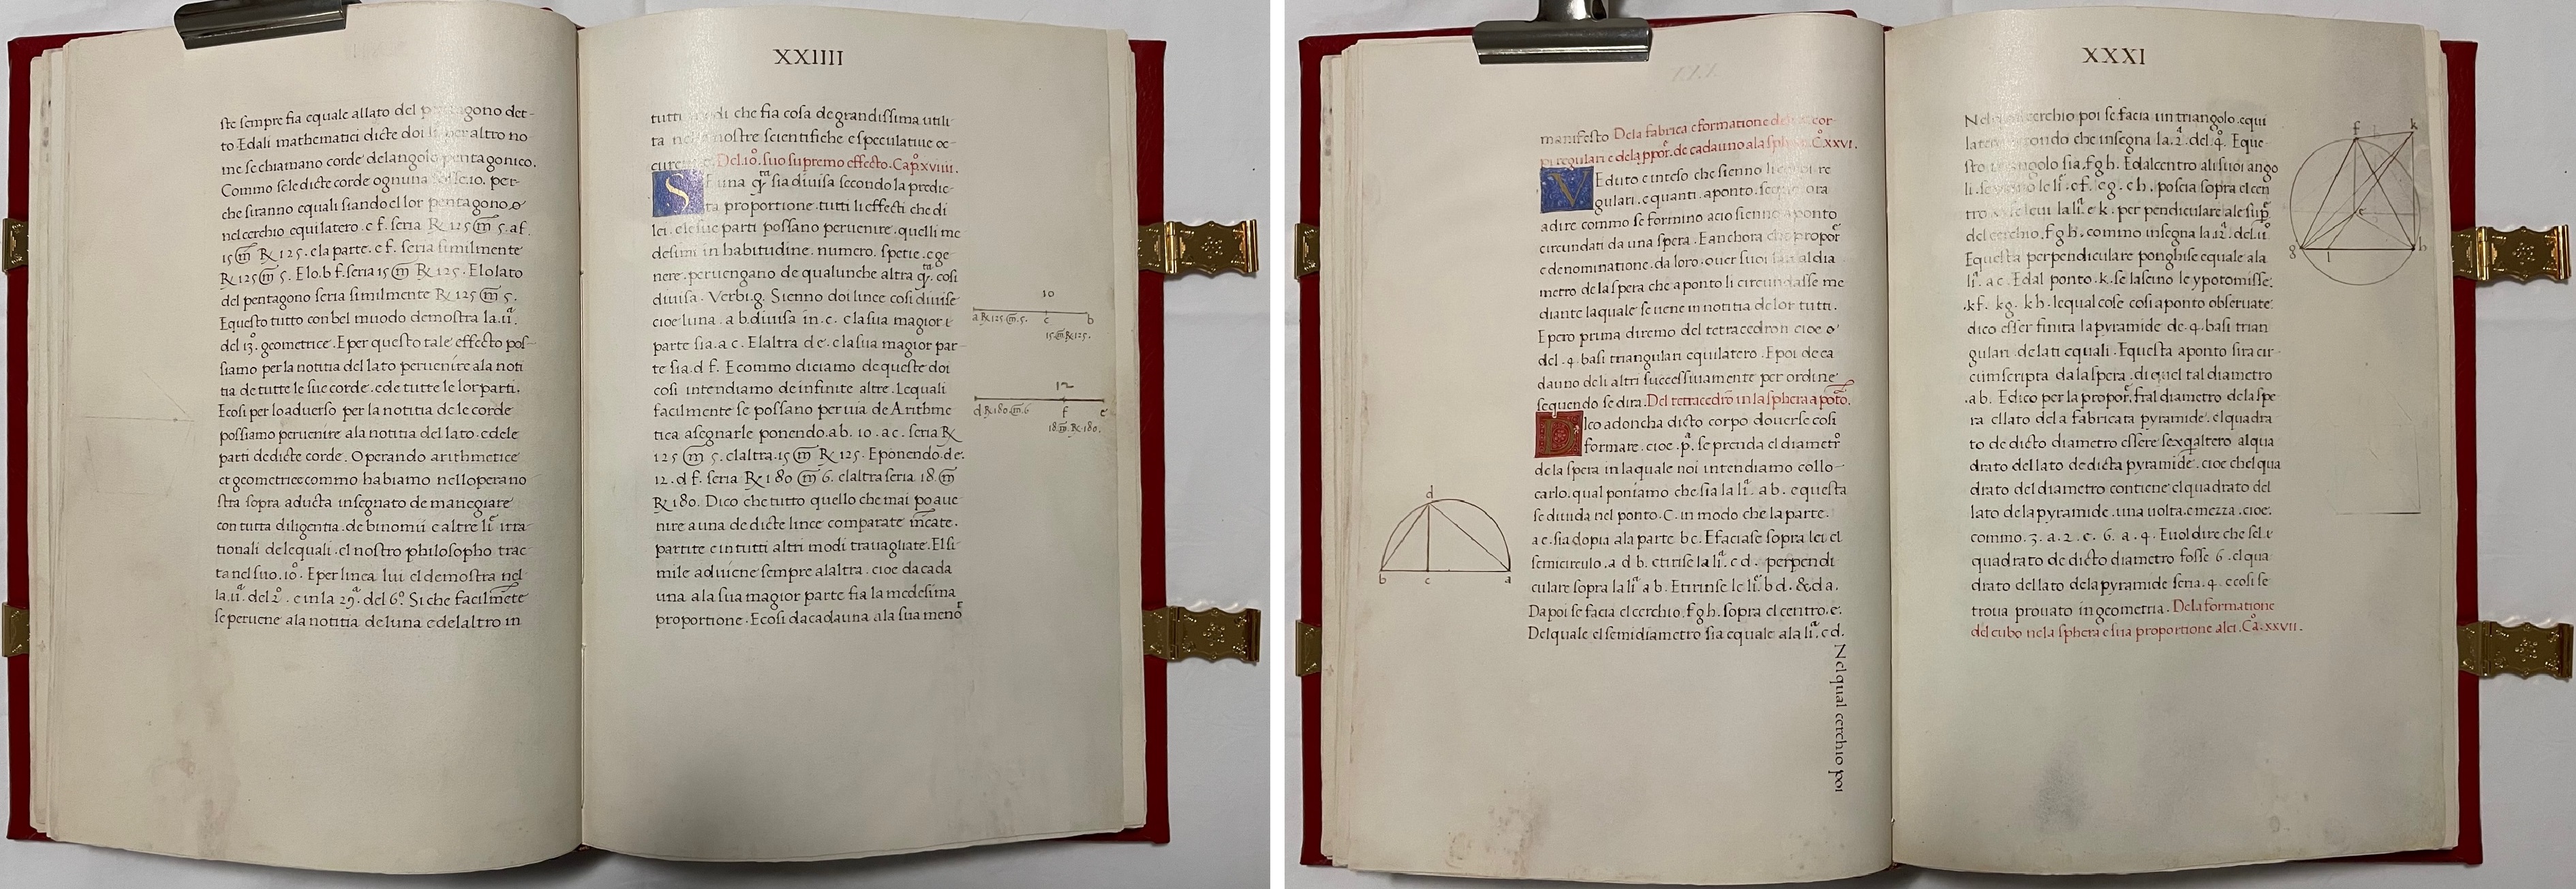 ste sempre fia equale allato del pentagono det-
to. Edali mathematici dicte doi li per altro no
me se chiamano corde delangolo pentagonico.
Commo sele dicte corde ognuna fosse .10. per-
che siranno equali siando el lor pentagono
nel cerchio equilatero. c f. seria ℞ 125 m̃ 5. af.
15 m̃ ℞ 125. e la parte. e f. seria similmente
℞ 125 m̃ 5. E lo. b f. seria 15 m̃ ℞ 125. E lo lato
del pentagono seria similmente ℞ 125 m̃ 5.
Questo tutto con bel muodo demostra la .11ª.
del 13º. geometrice. E per questo tale effecto pos-
siamo per la notitia del lato peruenire ala noti
tia de tutte le sue corde. e de tutte le lor parti.
Ecosi per lo aduerso per la notitia de le corde
possiamo peruenire ala notitia del lato. e dele
parti de dicte corde. Operando arithmetice
et geometrice commo habiamo nell opera no
stra sopra aducta insegnato de manegiare
con tutta diligentia. de binomii e altre liᵉ irra
tionali delequali. el nostro philosopho trac
ta nel suo .10º. E per linea lui el demostra nel
la .11ª. del 2º. e in la 29ª. del 6º. Si che facilmẽte
se peruene ala notitia de luna e de laltro in
XXIIII
tutti modi che fia cosa de grandissima utili
ta nele nostre scientifiche e speculatiue oc-
curentie. Del .10º. suo supremo effecto. Capº. xviiii.
Se una q̃tª sia diuisa secondo la predic-
ta proportione. tutti li effecti che di
lei. e le sue parti possano peruenire. quelli me
desimi in habitudine. numero. spetie. e ge
nere. peruengano de qualunche altra q̃tª. cosi
diuisa. Verbi.g. Sienno doi linee cosi diuise
cioe luna . a b. diuisa in. c. e la sua magior
parte sia. a c. E laltra d e. e la sua magior par
te sia. d f. E commo diciamo de queste doi
cosi intendiamo de infinite altre. Lequali
facilmente se possano per uia de Arithme
tica asegnarle ponendo. a b. 10 . a c. seria ℞
125 m̃ 5. e laltra. 15 m̃ ℞ 125. E ponendo de.
12. d f. seria ℞ 180 m̃ 6. e laltra seria 18. m̃
℞ 180. Dico che tutto quello che mai po aue
nire a una de dicte linee comparate m̃cate.
partite e in tutti altri modi trauagliate. El si
mile aduiene sempre alaltra. cioe da cada
una ala sua magior parte fia la medesima
proportione. Ecosi da cadauna ala sua menoʳ
10
a ℞ 125. m̃. 5. c b
15. m̃ ℞ 125.
12
d ℞ 180. m̃. 6 f e
18. m̃. ℞ 180.
manifesto Dela fabrica e formatione de cor-
pi regulari e dela ꝓpoʳ. de cadauno ala sphera. Cº. xxvi.
Veduto e inteso che sienno li corpi re
gulari. e quanti. aponto. sequi ora
a dire commo se formino acio sienno aponto
circundati da una spera. E anchora che propoʳ
e denominatione. da loro. ouer suoi lati al dia
metro dela spera che aponto li circundasse me
diante laquale se uene in notitia de lor tutti.
Epero prima diremo del tetracedron cioe
del .4. basi triangulari equilatero. E poi de ca
dauno deli altri successiuamente per ordine
sequendo se dira. Del tetracedrõ in la sphera apõto.
Dico adoncha dicto corpo douerse cosi
formare. cioe .pª. se prenda el diametro
dela spera in laquale noi intendiamo collo-
carlo. qual poniamo che sia la liª. a b. e questa
se diuida nel ponto. C. in modo che la parte.
a c. sia dopia ala parte b c. E faciase sopra lei el
semicirculo. a d b. e tirise la liª. c d. perpendi
culare sopra la liª a b. E tirinse le liᵉ b d. & d a.
Dapoi se facia el cerchio. f g h. sopra el centro. e.
Del quale el semidiametro sia equale ala liª. c d.
Nel qual cerchio poi
d
b c a
XXXI
Nel qual cerchio poi se facia un triangolo. equi
latero secondo che insegna la .2ª. del .4º. E que-
sto triangolo sia. f g h. E dal centro ali suoi ango
li. se menino le liᵉ. e f. e g. e h. poscia sopra el cen
tro se leui la liª. e k. perpendiculare ale sup̃.
del cerchio. f g h. commo insegna la .12ª. del .11º.
E questa perpendiculare ponghise equale ala
liª. a c. E dal ponto. k. se lascino le ypotomisse.
.k f. k g. k h. lequal cose cosi aponto obseruate.
dico esser finita la pyramide de .4. basi trian
gulari de lati equali. E questa aponto sira cir-
cumscripta da la spera. di quel tal diametro
.a b. E dico per la propoʳ. fra l diametro dela spe
ra e l lato dela fabricata pyramide. el quadra
to de dicto diametro essere sexq̃altero al qua
drato del lato de dicta pyramide. cioe chel qua
drato del diametro contiene el quadrato del
lato dela pyramide. una uolta. e mezza . cioe.
commo. 3. a .2. e. 6. a .4. E uol dire che sel
quadrato de dicto diametro fosse 6. el qua
drato del lato dela pyramide seria .4. e cosi se
troua prouato in geometria. Dela formatione
del cubo nela sphera e sua proportione a lei. Cª. xxvii.
f k
e
g l h